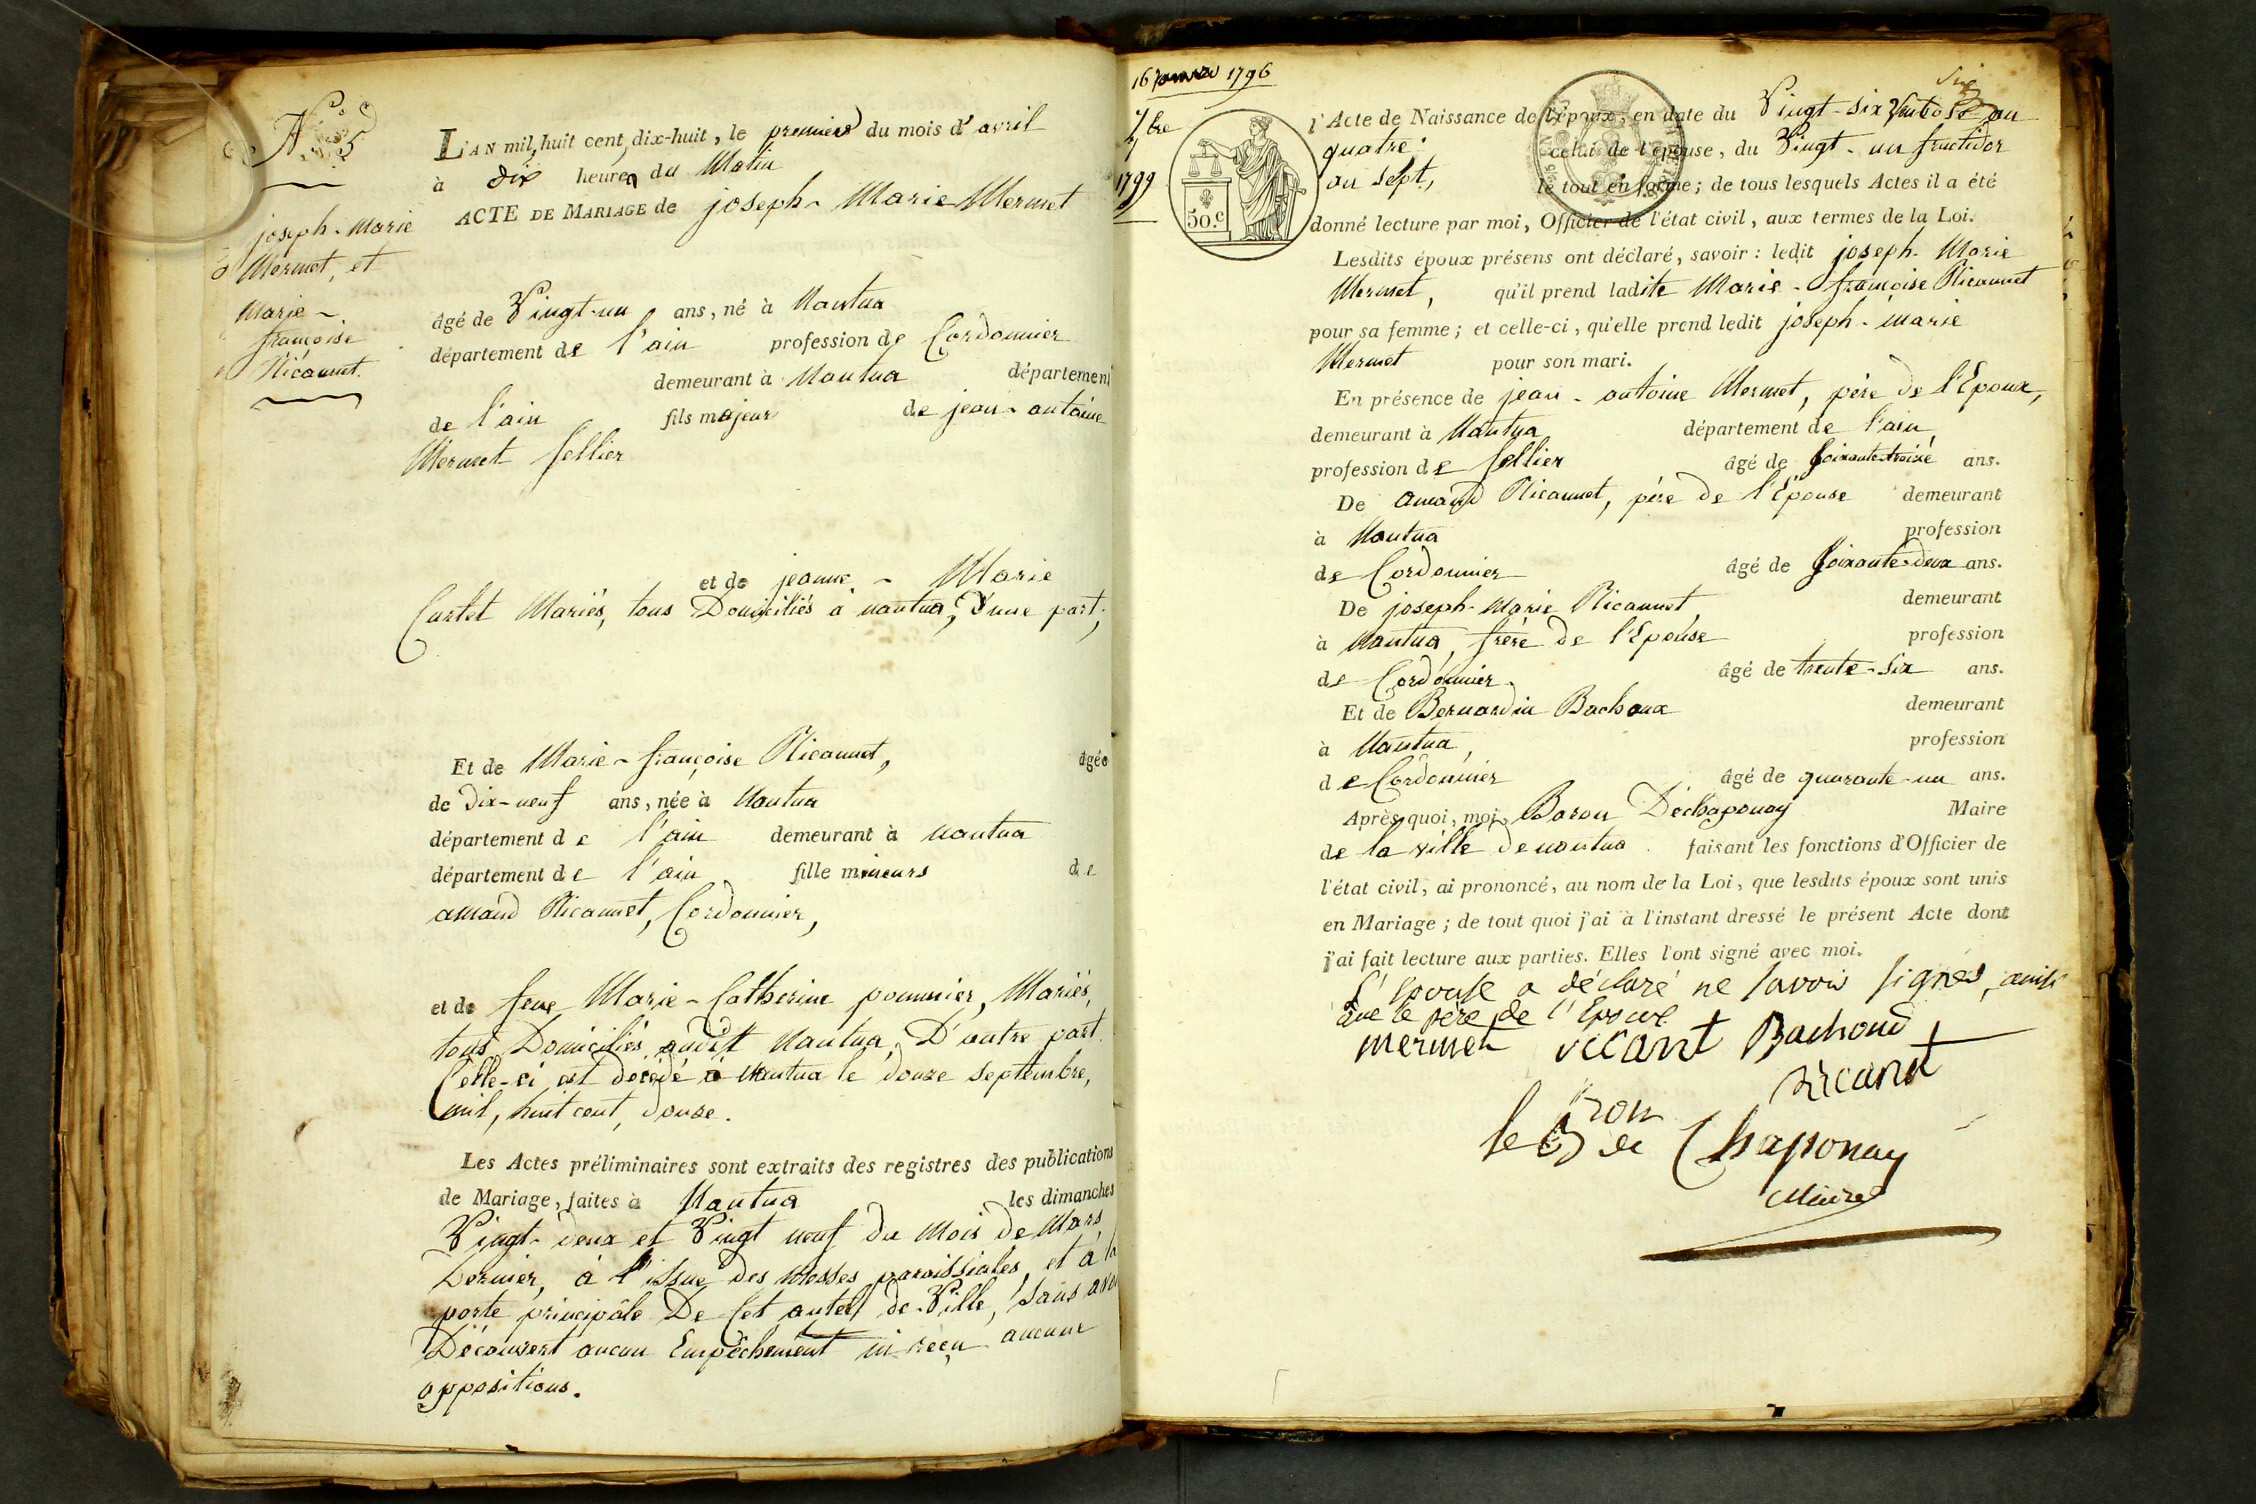 N.° 5
joseph-Marie
Mermet, et
Marie-
françoise
Ricannet.
L'AN mil, huit cent, dix-huit, le premier du mois d'avril
à dix heures du Matin
ACTE DE MARIAGE de joseph-Marie Mermet
âgé de Vingt-un ans, né à Nantua
département de l'ain profession de Cordonnier
demeurant à Nantua département
de l'ain fils majeur de jean-antoine
Mermet sellier
et de jeanne-Marie
Carlet Mariés, tous Domiciliés à nantua, d'une part;
Et de Marie-françoise Ricannet, âgée
de Dix-neuf ans, née à Nantua
département de l'ain demeurant à nantua
département de l'ain fille mineure de
amand Ricannet, Cordonnier,
et de feue Marie-Catherine pommier, Mariés,
tous Domiciliés audit Nantua, D'autre part.
Celle-ci est décédé à Nantua le douze septembre,
mil, huit cent, douze.
Les Actes préliminaires sont extraits des registres des publications
de Mariage, faites à Nantua les dimanches
Vingt-deux et Vingt neuf du Mois de Mars
Dernier, à l'issue des Messes paroissiales, et à la
porte principâle De Cet autel de Ville, sans avoir
Découvert aucun Empêchement ni reçu aucune
oppositions.
16 1796
7bre
1799
50.c
six
l'Acte de Naissance de l'époux, en date du Vingt-six Ventose an
quatre; celui de l'épouse, du Vingt-un fructidor
an sept, le tout en forme; de tous lesquels Actes il a été
donné lecture par moi, Officier de l'état civil, aux termes de la Loi.
Lesdits époux présens ont déclaré, savoir: ledit joseph-Marie
Mermet, qu'il prend ladite Marie-françoise Ricannet
pour sa femme; et celle-ci, qu'elle prend ledit joseph-marie
Mermet pour son mari.
En présence de jean-antoine Mermet, père de l'Epoux,
demeurant à Nantua département de l'ain
profession de sellier âgé de soixante-treize ans.
De amand Ricannet, père de l'Épouse demeurant
à Nantua profession
de Cordonnier âgé de soixante-deux ans.
De joseph-Marie Ricannet demeurant
à Nantua, frère de l'Epouse profession
de Cordonnier âgé de trente-six ans.
Et de Bernardin Bachoux demeurant
à Nantua, profession
de Cordonnier âgé de quarante-un ans.
Après quoi, moi Baron Déchaponay Maire
de la ville de nantua faisant les fonctions d'Officier de
l'état civil, ai prononcé, au nom de la Loi, que lesdits époux sont unis
en Mariage; de tout quoi j'ai à l'instant dressé le présent Acte dont
j'ai fait lecture aux parties. Elles l'ont signé avec moi.
L'Epouse a déclaré ne savoir signer, ainsi
que le père de l'Epoux
mermet ricant Bachoud
ricanet
le Bron de Chaponay
Maire